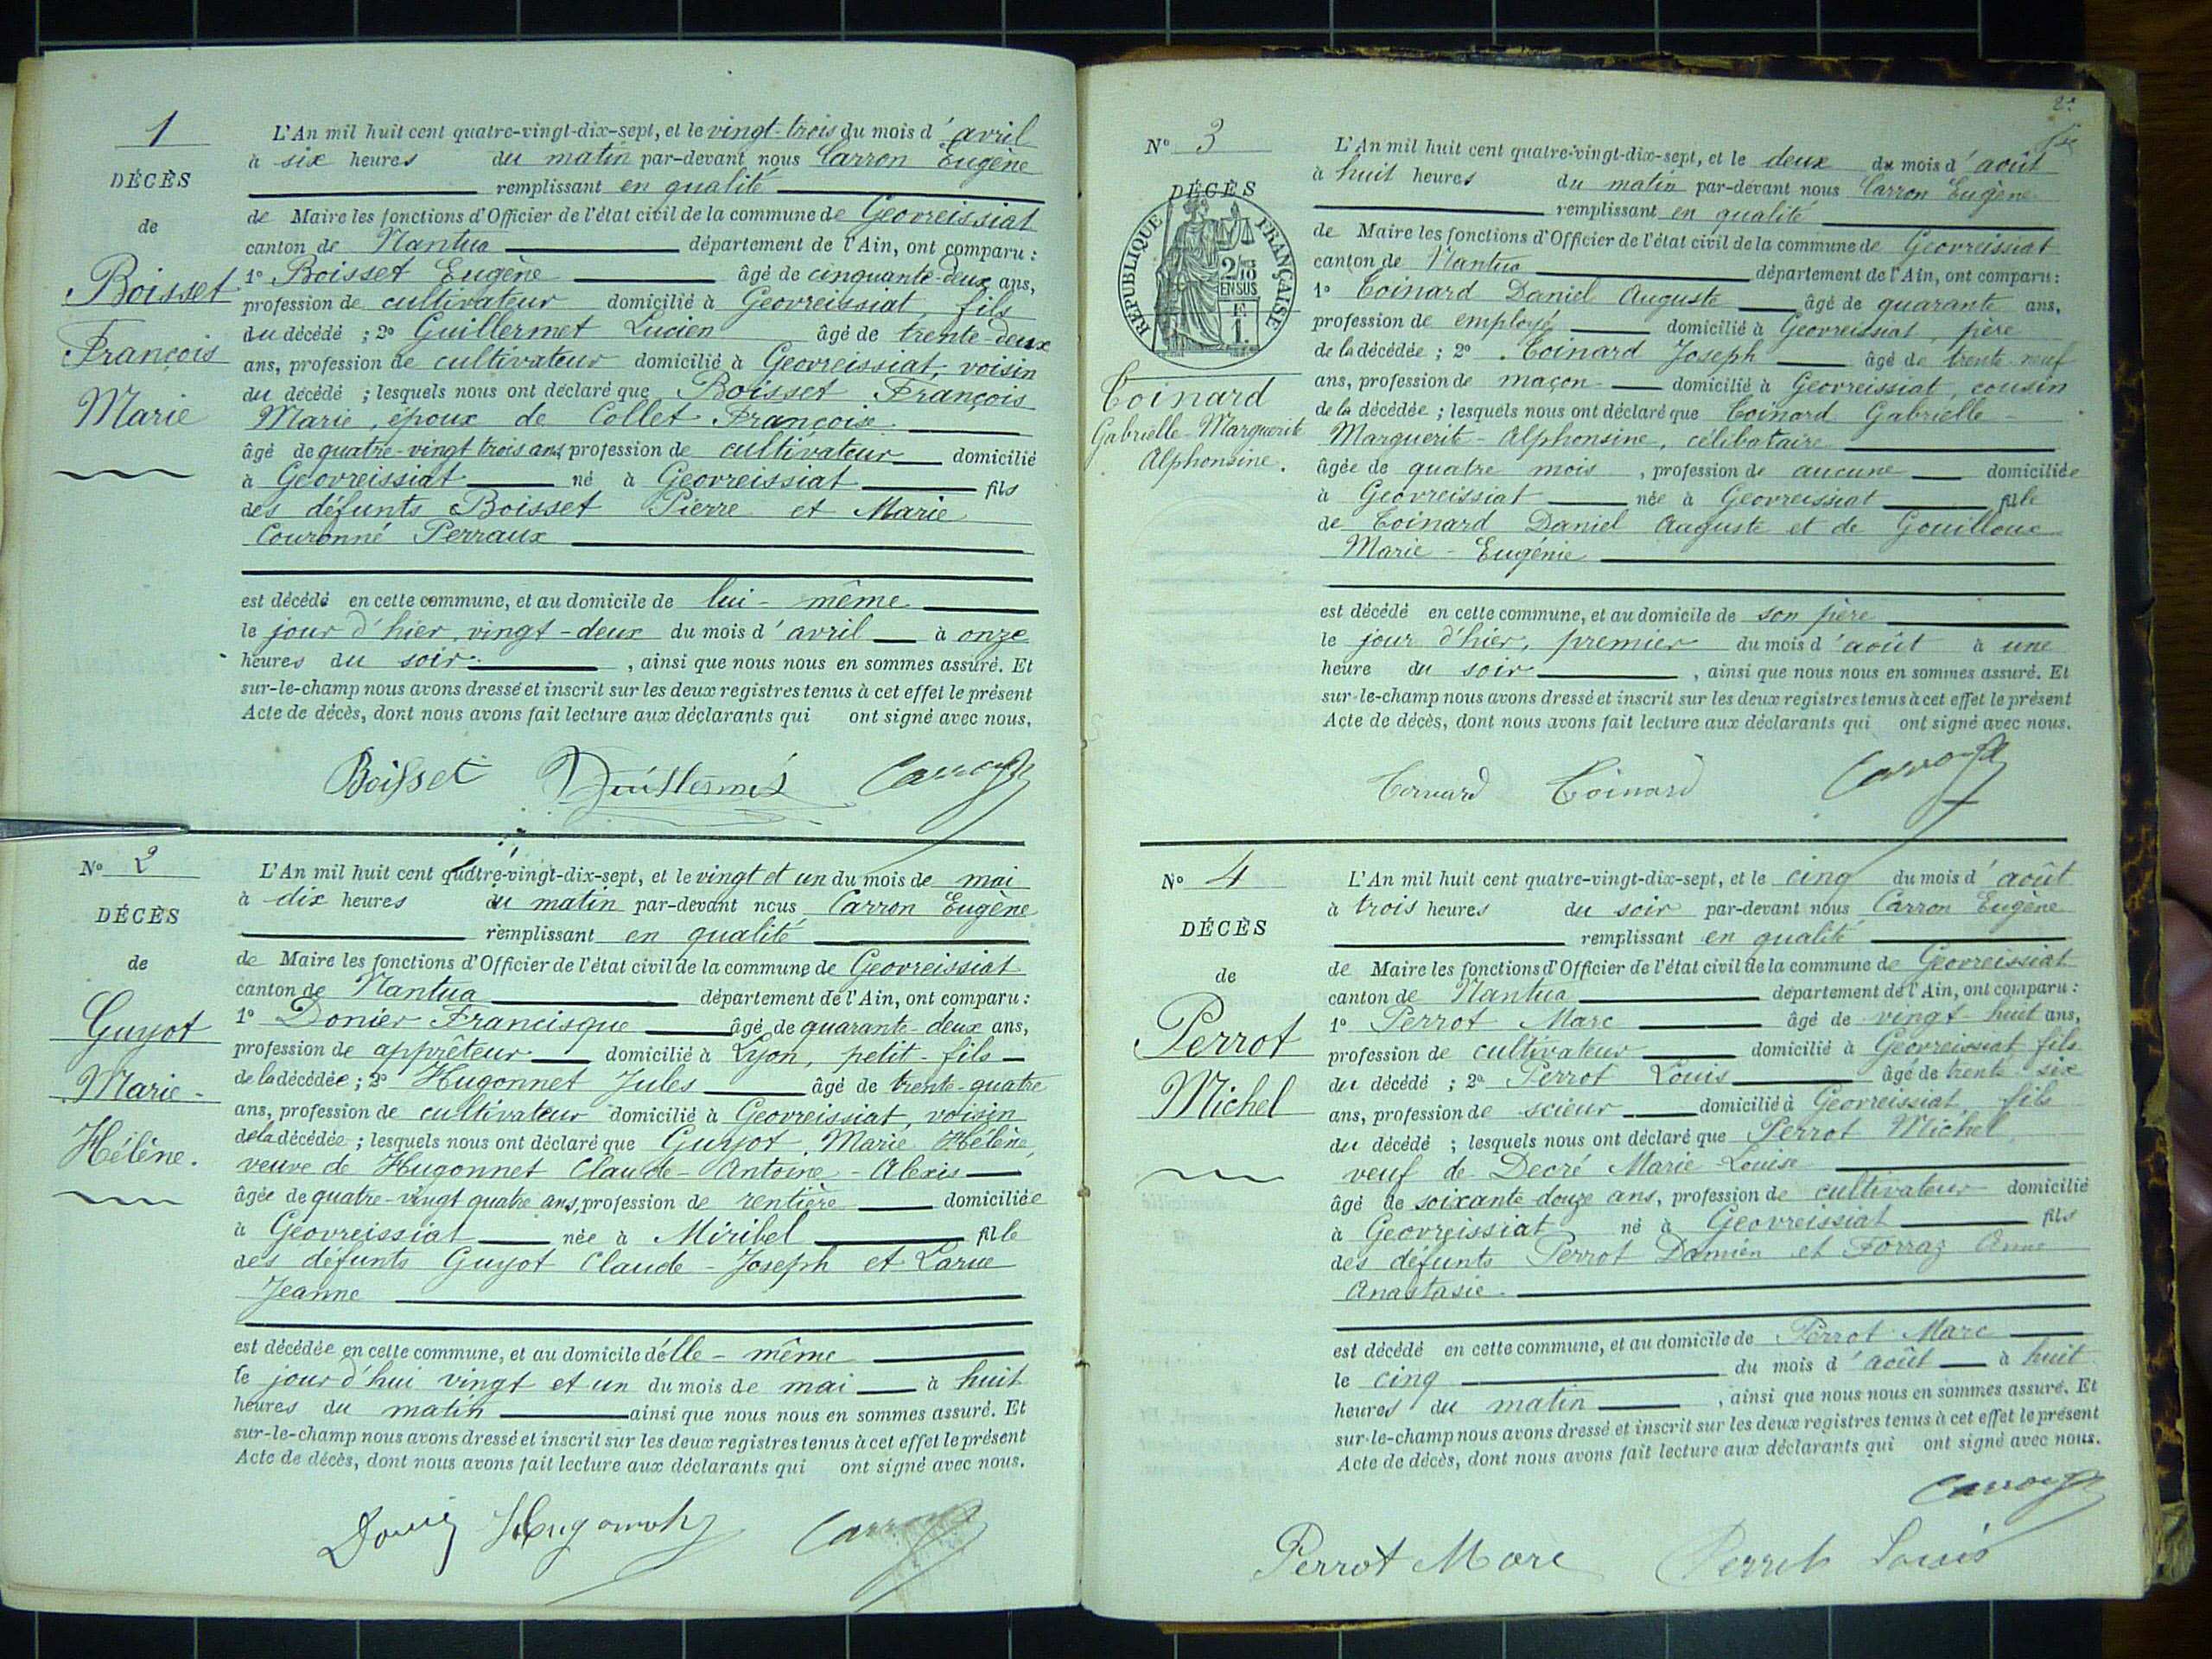 1
DÉCÈS
de
Boisset
François
Marie
L'An mil huit cent quatre-vingt-dix-sept, et le vingt-trois du mois d'avril
à six heures du matin par-devant nous Carron Eugène
remplissant en qualité
de Maire les fonctions d'Officier de l'état civil de la commune de Geovreissiat
canton de Nantua département de l'Ain, ont comparu :
1° Boisset Eugène âgé de cinquante-deux ans,
profession de cultivateur domicilié à Geovreissiat, fils
du décédé ; 2° Guillermet Lucien âgé de trente-deux
ans, profession de cultivateur domicilié à Geovreissiat, voisin
du décédé ; lesquels nous ont déclaré que Boisset François
Marie, époux de Collet Françoise
âgé de quatre-vingt trois ans, profession de cultivateur domicilié
à Geovreissiat né à Geovreissiat fils
des défunts Boisset Pierre et Marie
Couronné Perraux
est décédé en cette commune, et au domicile de lui-même
le jour d'hier, vingt-deux du mois d'avril à onze
heures du soir, ainsi que nous nous en sommes assuré. Et
sur-le-champ nous avons dressé et inscrit sur les deux registres tenus à cet effet le présent
Acte de décès, dont nous avons fait lecture aux déclarants qui ont signé avec nous.
Boisset Guillermet Carron
N° 2
DÉCÈS
de
Guyot
Marie-
Hélène.
L'An mil huit cent quatre-vingt-dix-sept, et le vingt et un du mois de mai
à dix heures du matin par-devant nous Carron Eugène
remplissant en qualité
de Maire les fonctions d'Officier de l'état civil de la commune de Geovreissiat
canton de Nantua département de l'Ain, ont comparu :
1° Donier Francisque âgé de quarante-deux ans,
profession de apprêteur domicilié à Lyon, petit-fils
de la décédée ; 2° Hugonnet Jules âgé de trente-quatre
ans, profession de cultivateur domicilié à Geovreissiat, voisin
de la décédée ; lesquels nous ont déclaré que Guyot, Marie Hélène,
veuve de Hugonnet Claude-Antoine-Alexis
âgée de quatre-vingt quatre ans, profession de rentière domiciliée
à Geovreissiat née à Miribel fille
des défunts Guyot Claude-Joseph et Larue
Jeanne
est décédée en cette commune, et au domicile d'elle-même
le jour d'hui vingt et un du mois de mai à huit
heures du matin ainsi que nous nous en sommes assuré. Et
sur-le-champ nous avons dressé et inscrit sur les deux registres tenus à cet effet le présent
Acte de décès, dont nous avons fait lecture aux déclarants qui ont signé avec nous.
Hugonnet Carron
2e
N° 3
DÉCÈS
RÉPUBLIQUE FRANÇAISE
2/10 EN SUS
F. 1.
Coinard
Gabrielle-Marguerite
Alphonsine.
L'An mil huit cent quatre-vingt-dix-sept, et le deux du mois d'août
à huit heures du matin par-devant nous Carron Eugène
remplissant en qualité
de Maire les fonctions d'Officier de l'état civil de la commune de Geovreissiat
canton de Nantua département de l'Ain, ont comparu :
1° Coinard Daniel Auguste âgé de quarante ans,
profession de employé domicilié à Geovreissiat, père
de la décédée ; 2° Coinard Joseph âgé de trente-neuf
ans, profession de maçon domicilié à Geovreissiat, cousin
de la décédée ; lesquels nous ont déclaré que Coinard Gabrielle-
Marguerite-Alphonsine, célibataire
âgée de quatre mois, profession de aucune domiciliée
à Geovreissiat née à Geovreissiat fille
de Coinard Daniel Auguste et de Gouilloux
Marie-Eugénie
est décédé en cette commune, et au domicile de son père
le jour d'hier, premier du mois d'août à une
heure du soir, ainsi que nous nous en sommes assuré. Et
sur-le-champ nous avons dressé et inscrit sur les deux registres tenus à cet effet le présent
Acte de décès, dont nous avons fait lecture aux déclarants qui ont signé avec nous.
Coinard Coinard Carron
N° 4
DÉCÈS
de
Perrot
Michel
L'An mil huit cent quatre-vingt-dix-sept, et le cinq du mois d'août
à trois heures du soir par-devant nous Carron Eugène
remplissant en qualité
de Maire les fonctions d'Officier de l'état civil de la commune de Geovreissiat
canton de Nantua département de l'Ain, ont comparu :
1° Perrot Marc âgé de vingt-huit ans,
profession de cultivateur domicilié à Geovreissiat fils
du décédé ; 2° Perrot Louis âgé de trente-six
ans, profession de scieur domicilié à Geovreissiat, fils
du décédé ; lesquels nous ont déclaré que Perrot Michel,
veuf de Decré Marie-Louise
âgé de soixante-douze ans, profession de cultivateur domicilié
à Geovreissiat né à Geovreissiat fils
des défunts Perrot Damien et Forraz Anne
Anastasie.
est décédé en cette commune, et au domicile de Perrot Marc
le cinq du mois d'août à huit
heures du matin, ainsi que nous nous en sommes assuré. Et
sur-le-champ nous avons dressé et inscrit sur les deux registres tenus à cet effet le présent
Acte de décès, dont nous avons fait lecture aux déclarants qui ont signé avec nous.
Carron
Perrot Marc Perrot Louis